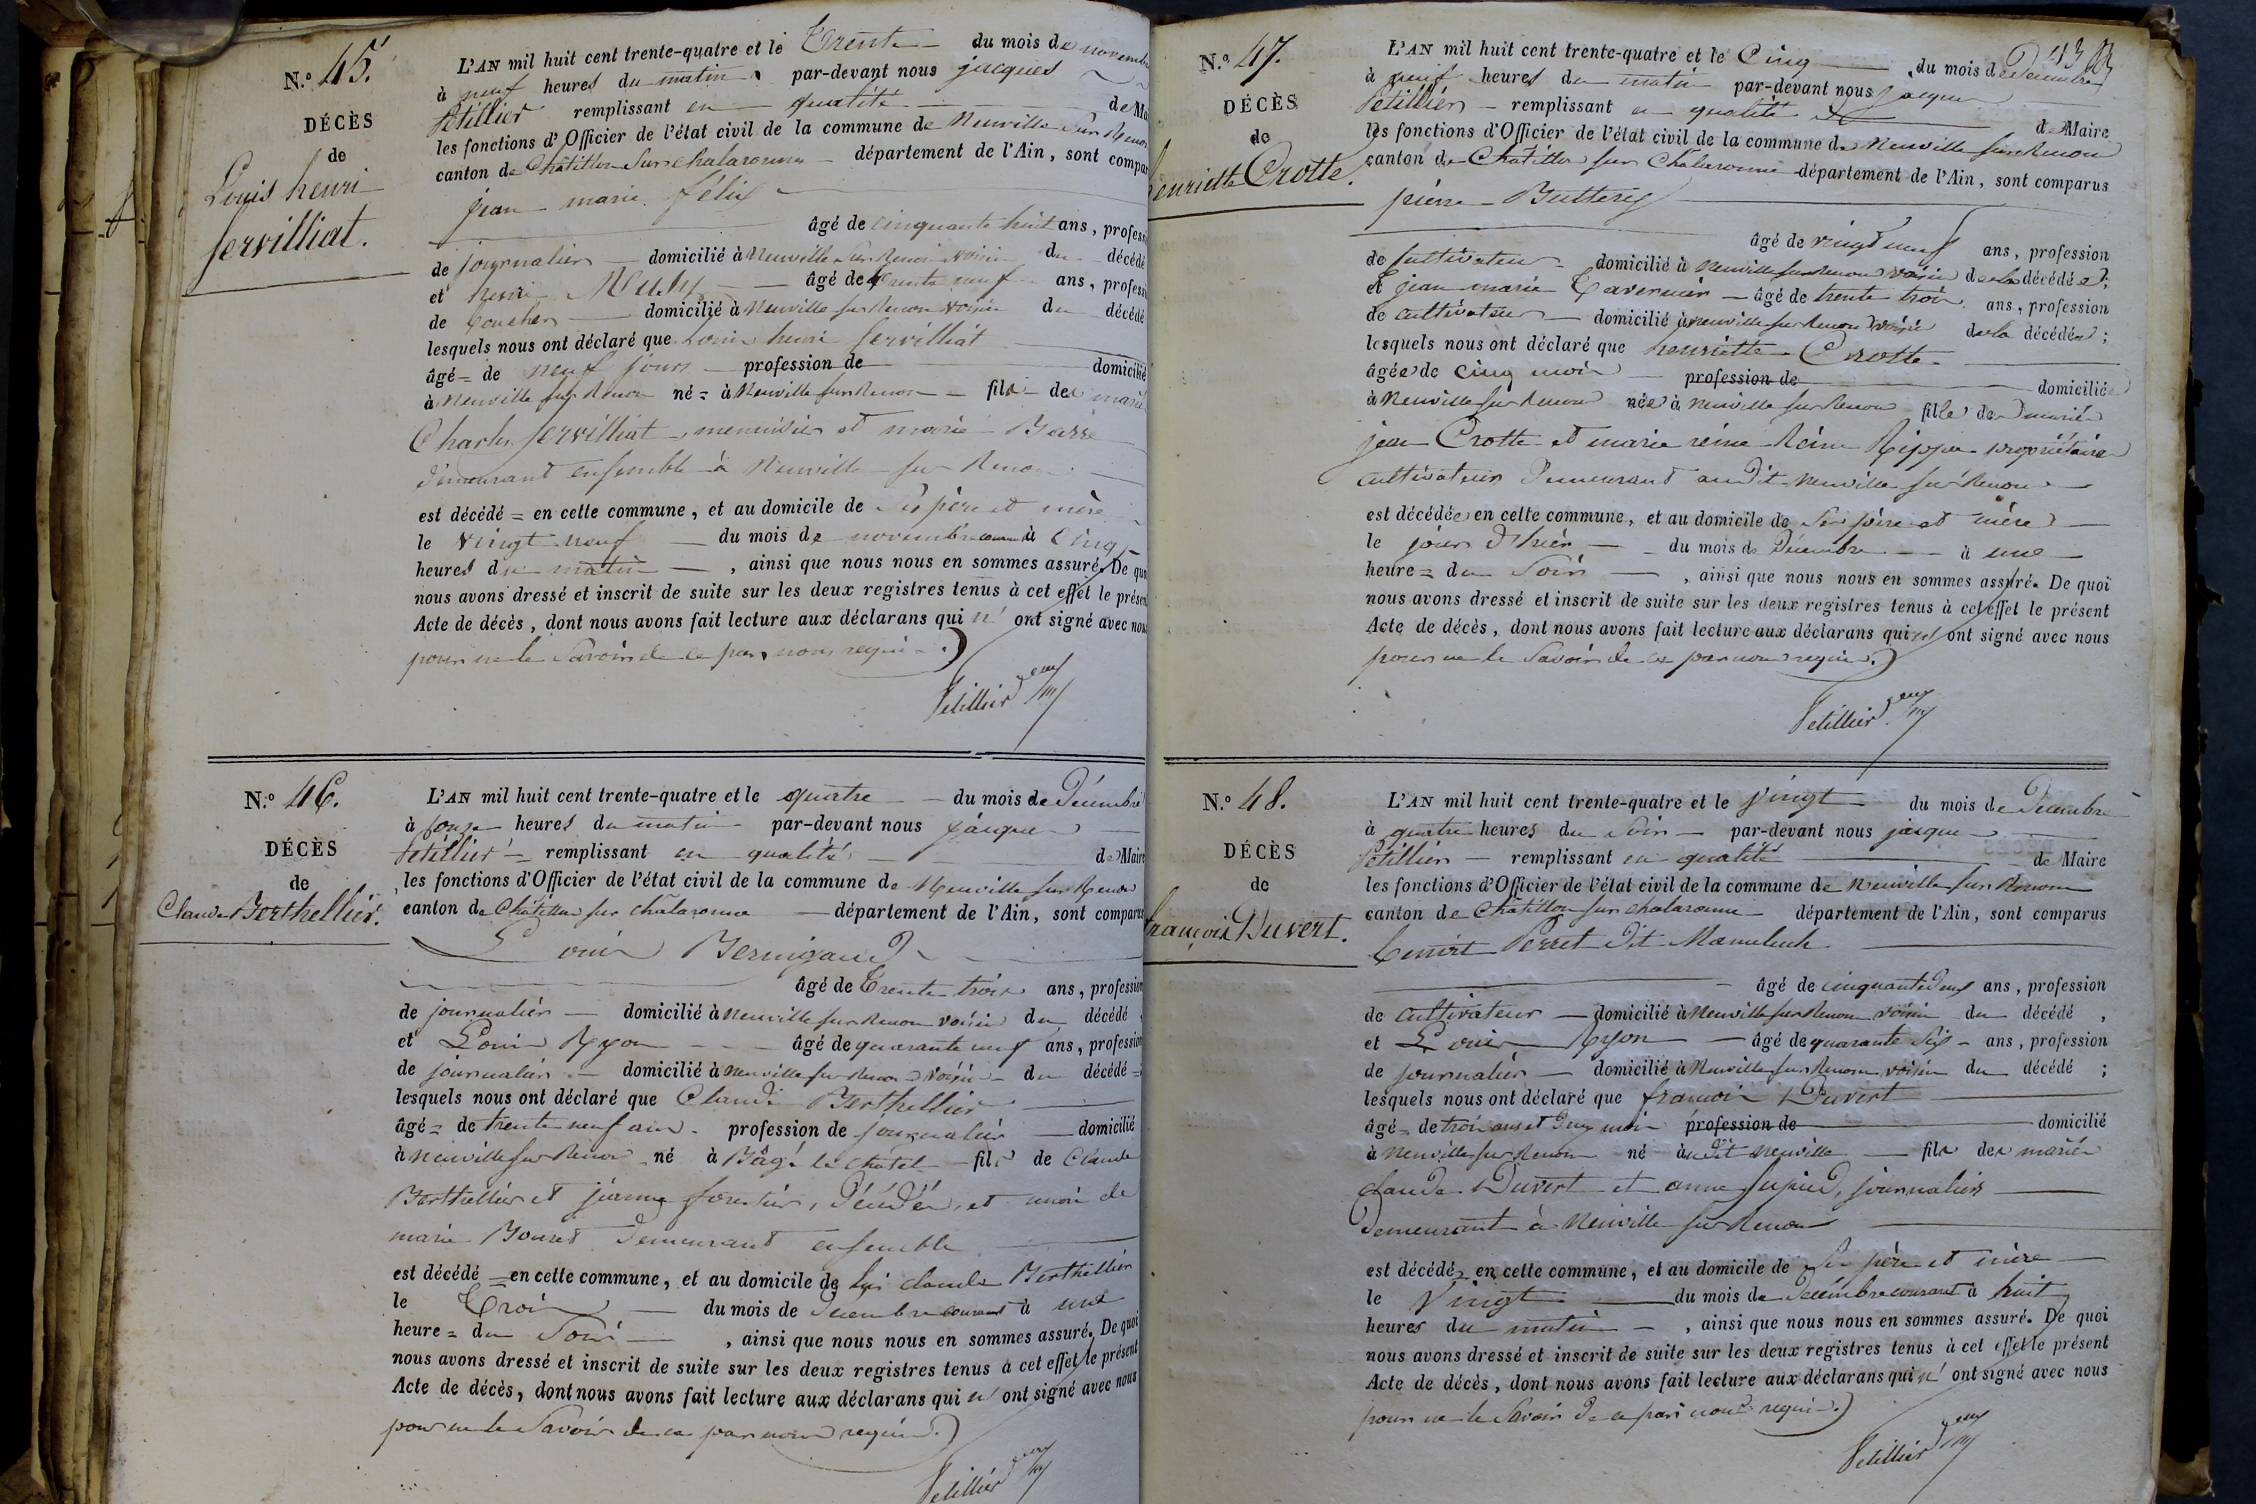 N.º 45.
DÉCÈS
de
Louis henri
Servilliat.
L'AN mil huit cent trente-quatre et le Trente du mois de novembre
à neuf heures du matin par-devant nous jacques
Petillier remplissant en qualité de Mai
les fonctions d'Officier de l'état civil de la commune de Neuville sur Renon
canton de Châtillon sur chalaronne département de l'Ain, sont compar
jean marie félix
âgé de cinquante huit ans, profess
de journalier domicilié à Neuville sur Renon voisin du décédé
et henri âgé de trente neuf ans, profess
de boucher domicilié à Neuville sur Renon voisin du décédé
lesquels nous ont déclaré que Louis henri Servilliat
âgé = de neuf jours profession de domicilié
à Neuville sur Renon né = à Neuville sur Renon fils des mariés
Charles Servilliat, menuisier et marie Barre
demeurant ensemble à Neuville sur Renon
est décédé = en cette commune, et au domicile de ses père et mère
le vingt neuf du mois de novembre courant à cinq
heures du matin, ainsi que nous nous en sommes assuré. De quo
nous avons dressé et inscrit de suite sur les deux registres tenus à cet effet le présen
Acte de décès, dont nous avons fait lecture aux déclarans qui n' ont signé avec nou
pour ne le savoir de ce par nous requis.
Petillier
N.º 46.
DÉCÈS
de
Claude Berthellier.
L'AN mil huit cent trente-quatre et le quatre du mois de Décembre
à onze heures du matin par-devant nous jacques
Petillier = remplissant en qualité de Maire
les fonctions d'Officier de l'état civil de la commune de Neuville sur Renon
canton de Châtillon sur chalaronne département de l'Ain, sont comparus
Louis Bernigaud
âgé de Trente trois ans, profession
de journalier domicilié à Neuville sur Renon voisin du décédé
et Louis Ryon âgé de quarante neuf ans, profession
de journalier domicilié à Neuville sur Renon voisin du décédé =
lesquels nous ont déclaré que Claude Berthellier
âgé = de trente neuf ans profession de journalier domicilié
à Neuville sur Renon né à Bâgé le châtel fils de Claude
Berthellier et jeanne forestier, décédés, et mari de
marie Bouret demeurant ensemble
est décédé = en cette commune, et au domicile de lui claude Berthellier
le Trois du mois de Décembre courant à une
heure = du soir, ainsi que nous nous en sommes assuré. De quoi
nous avons dressé et inscrit de suite sur les deux registres tenus à cet effet le présent
Acte de décès, dont nous avons fait lecture aux déclarans qui n' ont signé avec nous
pour ne le savoir de ce par nous requis.
Petillier
N.º 47.
DÉCÈS
de
henriette Crotte.
43
L'AN mil huit cent trente-quatre et le Cinq du mois de Décembre
à neuf heures du matin par-devant nous jacques
Petillier remplissant en qualité de Maire
les fonctions d'Officier de l'état civil de la commune de Neuville sur Renon
canton de Châtillon sur Chalaronne département de l'Ain, sont comparus
pierre Butteris
âgé de vingt neuf ans, profession
de cultivateur domicilié à Neuville sur Renon voisin de la décédée;
et jean marie Tavernier âgé de trente trois ans, profession
de cultivateur domicilié à Neuville sur Renon voisin de la décédée;
lesquels nous ont déclaré que henriette Crotte
âgée de cinq mois profession de domiciliée
à Neuville sur Renon née à Neuville sur Renon fille des mariés
jean Crotte et marie reine Reine Rippe propriétaires
cultivateurs demeurant audit Neuville sur Renon
est décédée en cette commune, et au domicile de ses père et mère
le jour d'hier du mois de Décembre à une
heure = du soir, ainsi que nous nous en sommes assuré. De quoi
nous avons dressé et inscrit de suite sur les deux registres tenus à cet effet le présent
Acte de décès, dont nous avons fait lecture aux déclarans qui n' ont signé avec nous
pour ne le savoir de ce par nous requis.
Petillier
N.º 48.
DÉCÈS
de
françois Duvert.
L'AN mil huit cent trente-quatre et le vingt du mois de Décembre
à quatre heures du soir par-devant nous jacques
Petillier remplissant en qualité de Maire
les fonctions d'Officier de l'état civil de la commune de Neuville sur Renon
canton de Châtillon sur chalaronne département de l'Ain, sont comparus
benoit Perret dit Mameluck
âgé de cinquante deux ans, profession
de cultivateur domicilié à Neuville sur Renon voisin du décédé,
et Louis Ryon âgé de quarante six ans, profession
de journalier domicilié à Neuville sur Renon voisin du décédé;
lesquels nous ont déclaré que francois Duvert
âgé = de trois ans et deux mois profession de domicilié
à Neuville sur Renon né audit Neuville fils des mariés
claude Duvert et anne Jujud, journaliers
demeurant à Neuville sur Renon
est décédé en cette commune, et au domicile de ses père et mère
le Vingt du mois de Décembre courant à huit
heures du matin, ainsi que nous nous en sommes assuré. De quoi
nous avons dressé et inscrit de suite sur les deux registres tenus à cet effet le présent
Acte de décès, dont nous avons fait lecture aux déclarans qui n' ont signé avec nous
pour ne le savoir de ce par nous requis.
Petillier